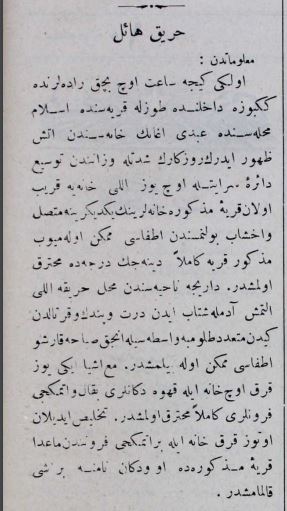 حريق هائل
معلوماتدن :
اولكى كيجه ساعت اوچ بچق راده لرنده
ككبوزه داخلنده طوزله قريه سنده اسلام
محله سنده عبدى اغانك خانه سندن اتش
ظهور ايدرك روزكارك شدتله وزانندن توسيع
دائرهٔ سرايتله اوچ يوز اللى خانه يه قريب
اولان قريهٔ مذكوره خانه لرينك يكديكرينه متصل
واخشاب بولنمسندن اطفاسى ممكن اوله ميوب
مذكور قريه كاملاً دينه جك درجه ده محترق
اولمشدر. داريجه ناحيه سندن محل حريقه اللى
التمش آدمله شتاب ايدن درت وبندك وقرتالدن
كيدن متعدد طلومبه واسطه سيله انجق صباحه قارشو
اطفاسى ممكن اوله بيلمشدر. مع اشيا ايكى يوز
قرق اوچ خانه ايله قهوه دكانلرى بقال واتمكجى
فرونلرى كاملاً محترق اولمشدر. تخليص ايديلان
اوتوز قرق خانه ايله بر اتمكجى فرونندن ماعدا
قريهٔ مذكوره ده او ودكان نامنه بر شى
قالمامشدر .